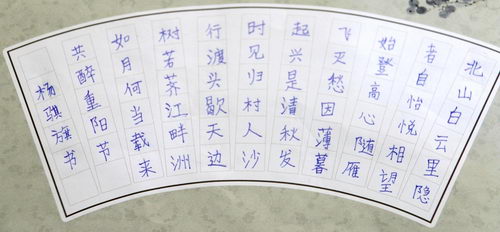 北山白云里隐
者自怡悦相望
始登高心随雁
飞灭愁因薄暮
起兴是清秋发
时见归村人沙
行渡头歇天边
树若荠江畔洲
如月何当载来
共醉重阳节
杨骐旗书